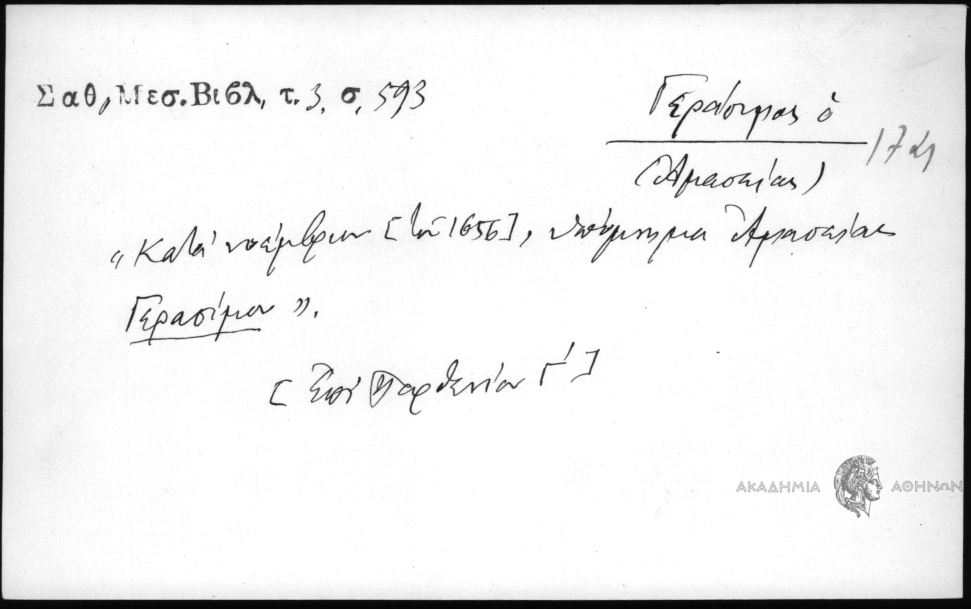 Σαθ, Μεσ. Βιβλ, τ. 3, σ, 593
Γεράσιμος ὁ
(Ἀμασείας)
„Κατά νοέμβριον [τοῦ 1656], ὑπόμνημα Ἀμασείας
Γερασίμου".
[Ἐπί Παρθενίου Γ΄]
ΑΚΑΔΗΜΙΑ ΑΘΗΝΩΝ